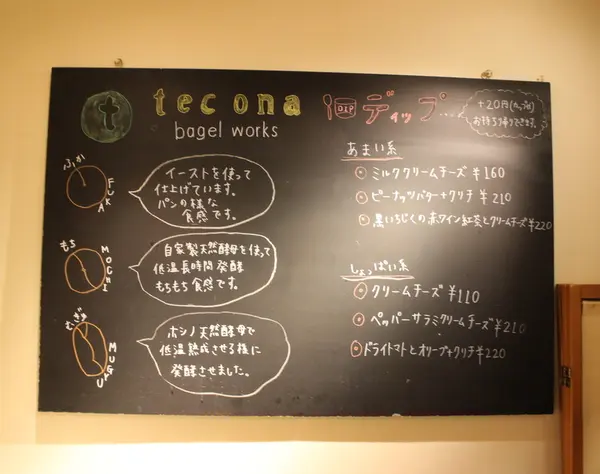 t
tecona
bagel works
ふか
FUKA
イーストを使って
仕上げています。
パンの様な
食感です。
もち
MOCHI
自家製天然酵母を使って
低温長時間発酵
もちもち食感です。
むぎゅ
MUGYU
ホシノ天然酵母で
低温熟成させる様に
発酵させました。
DIP
ディップ...
+20円
お持ち帰りできます。
あまい系
ミルククリームチーズ ¥160
ピーナッツバター+クリチ ¥210
黒いちじくの赤ワイン紅茶とクリームチーズ ¥220
しょっぱい系
クリームチーズ ¥110
ペッパーサラミクリームチーズ ¥210
ドライトマトとオリーブ+クリチ ¥220